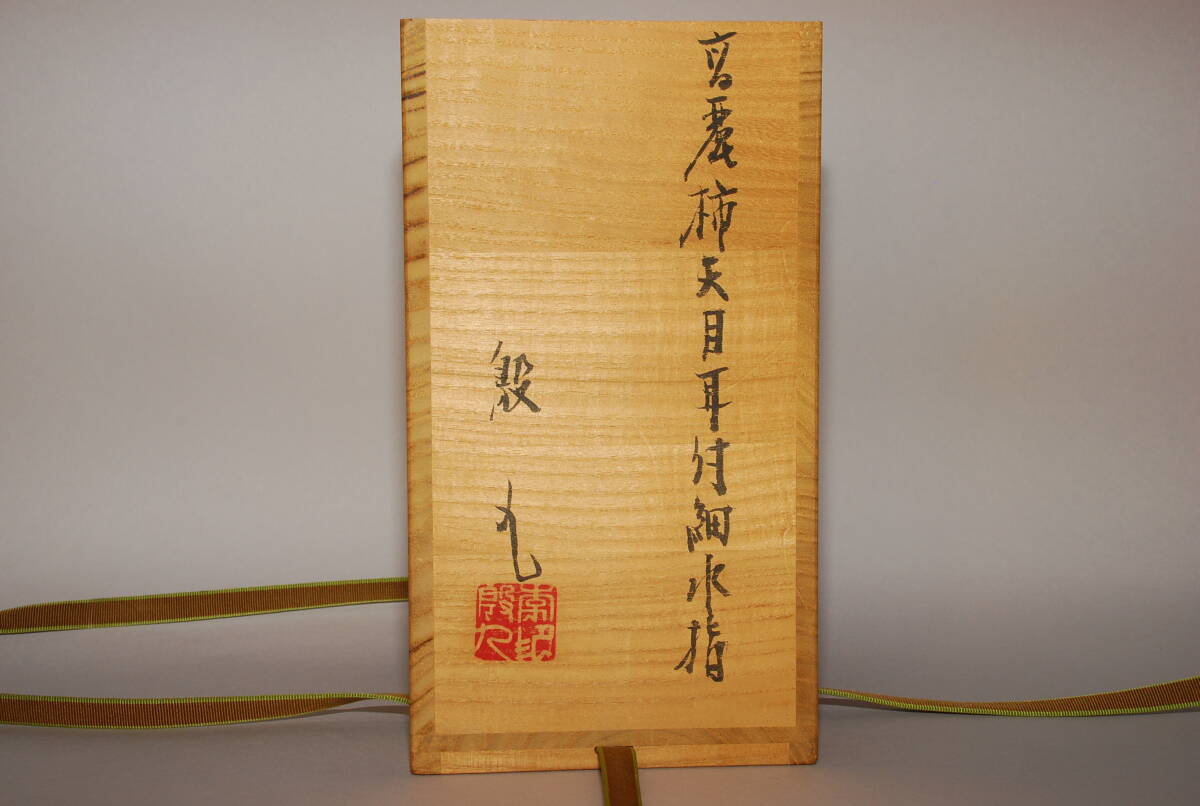 高麗柿天目耳付細水指
殷九